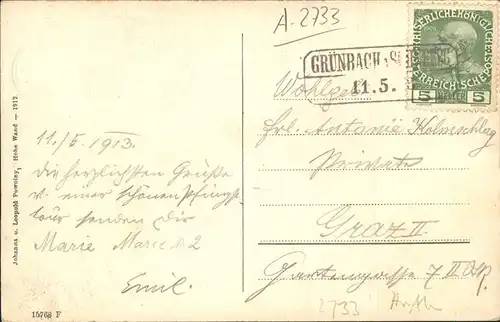 A-2733
KAISERLICHE KÖNIGLICHE
ÖSTERREICHISCHE
5 HELLER 5
GRÜNBACH
11.5.
Wohlgeb
Frl. Antanie Holmschlag
Private
Graz II
Gartengasse 7 II
11./5. 1913.
Die herzlichsten Grüße
v. einer schönen Pfingst
tour senden Dir
Marie Marie N: 2
Emil.
Johanna u. Leopold Powolny, Hohe Wand — 1912
15768 F
2733